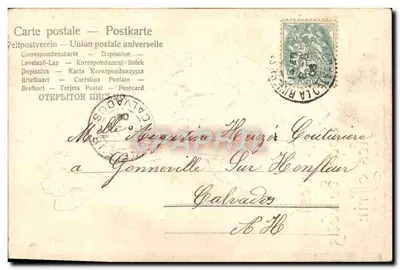 Carte postale — Postkarte
Weltpostverein — Union postale universelle
Correspondenzkarte – Dopisnice
Levelező-Lap — Korespondenční-lístek
Dopisnica — Karta Korespondencyjna
Briefkaart — Cartolina Postale
Brefkort — Tarjeta Postal — Postcard
ОТКРЫТОЕ ПИСЬМО
CALVADOS
Melle Augustine Heuzé Couturière
a Gonneville Sur Honfleur
Calvados